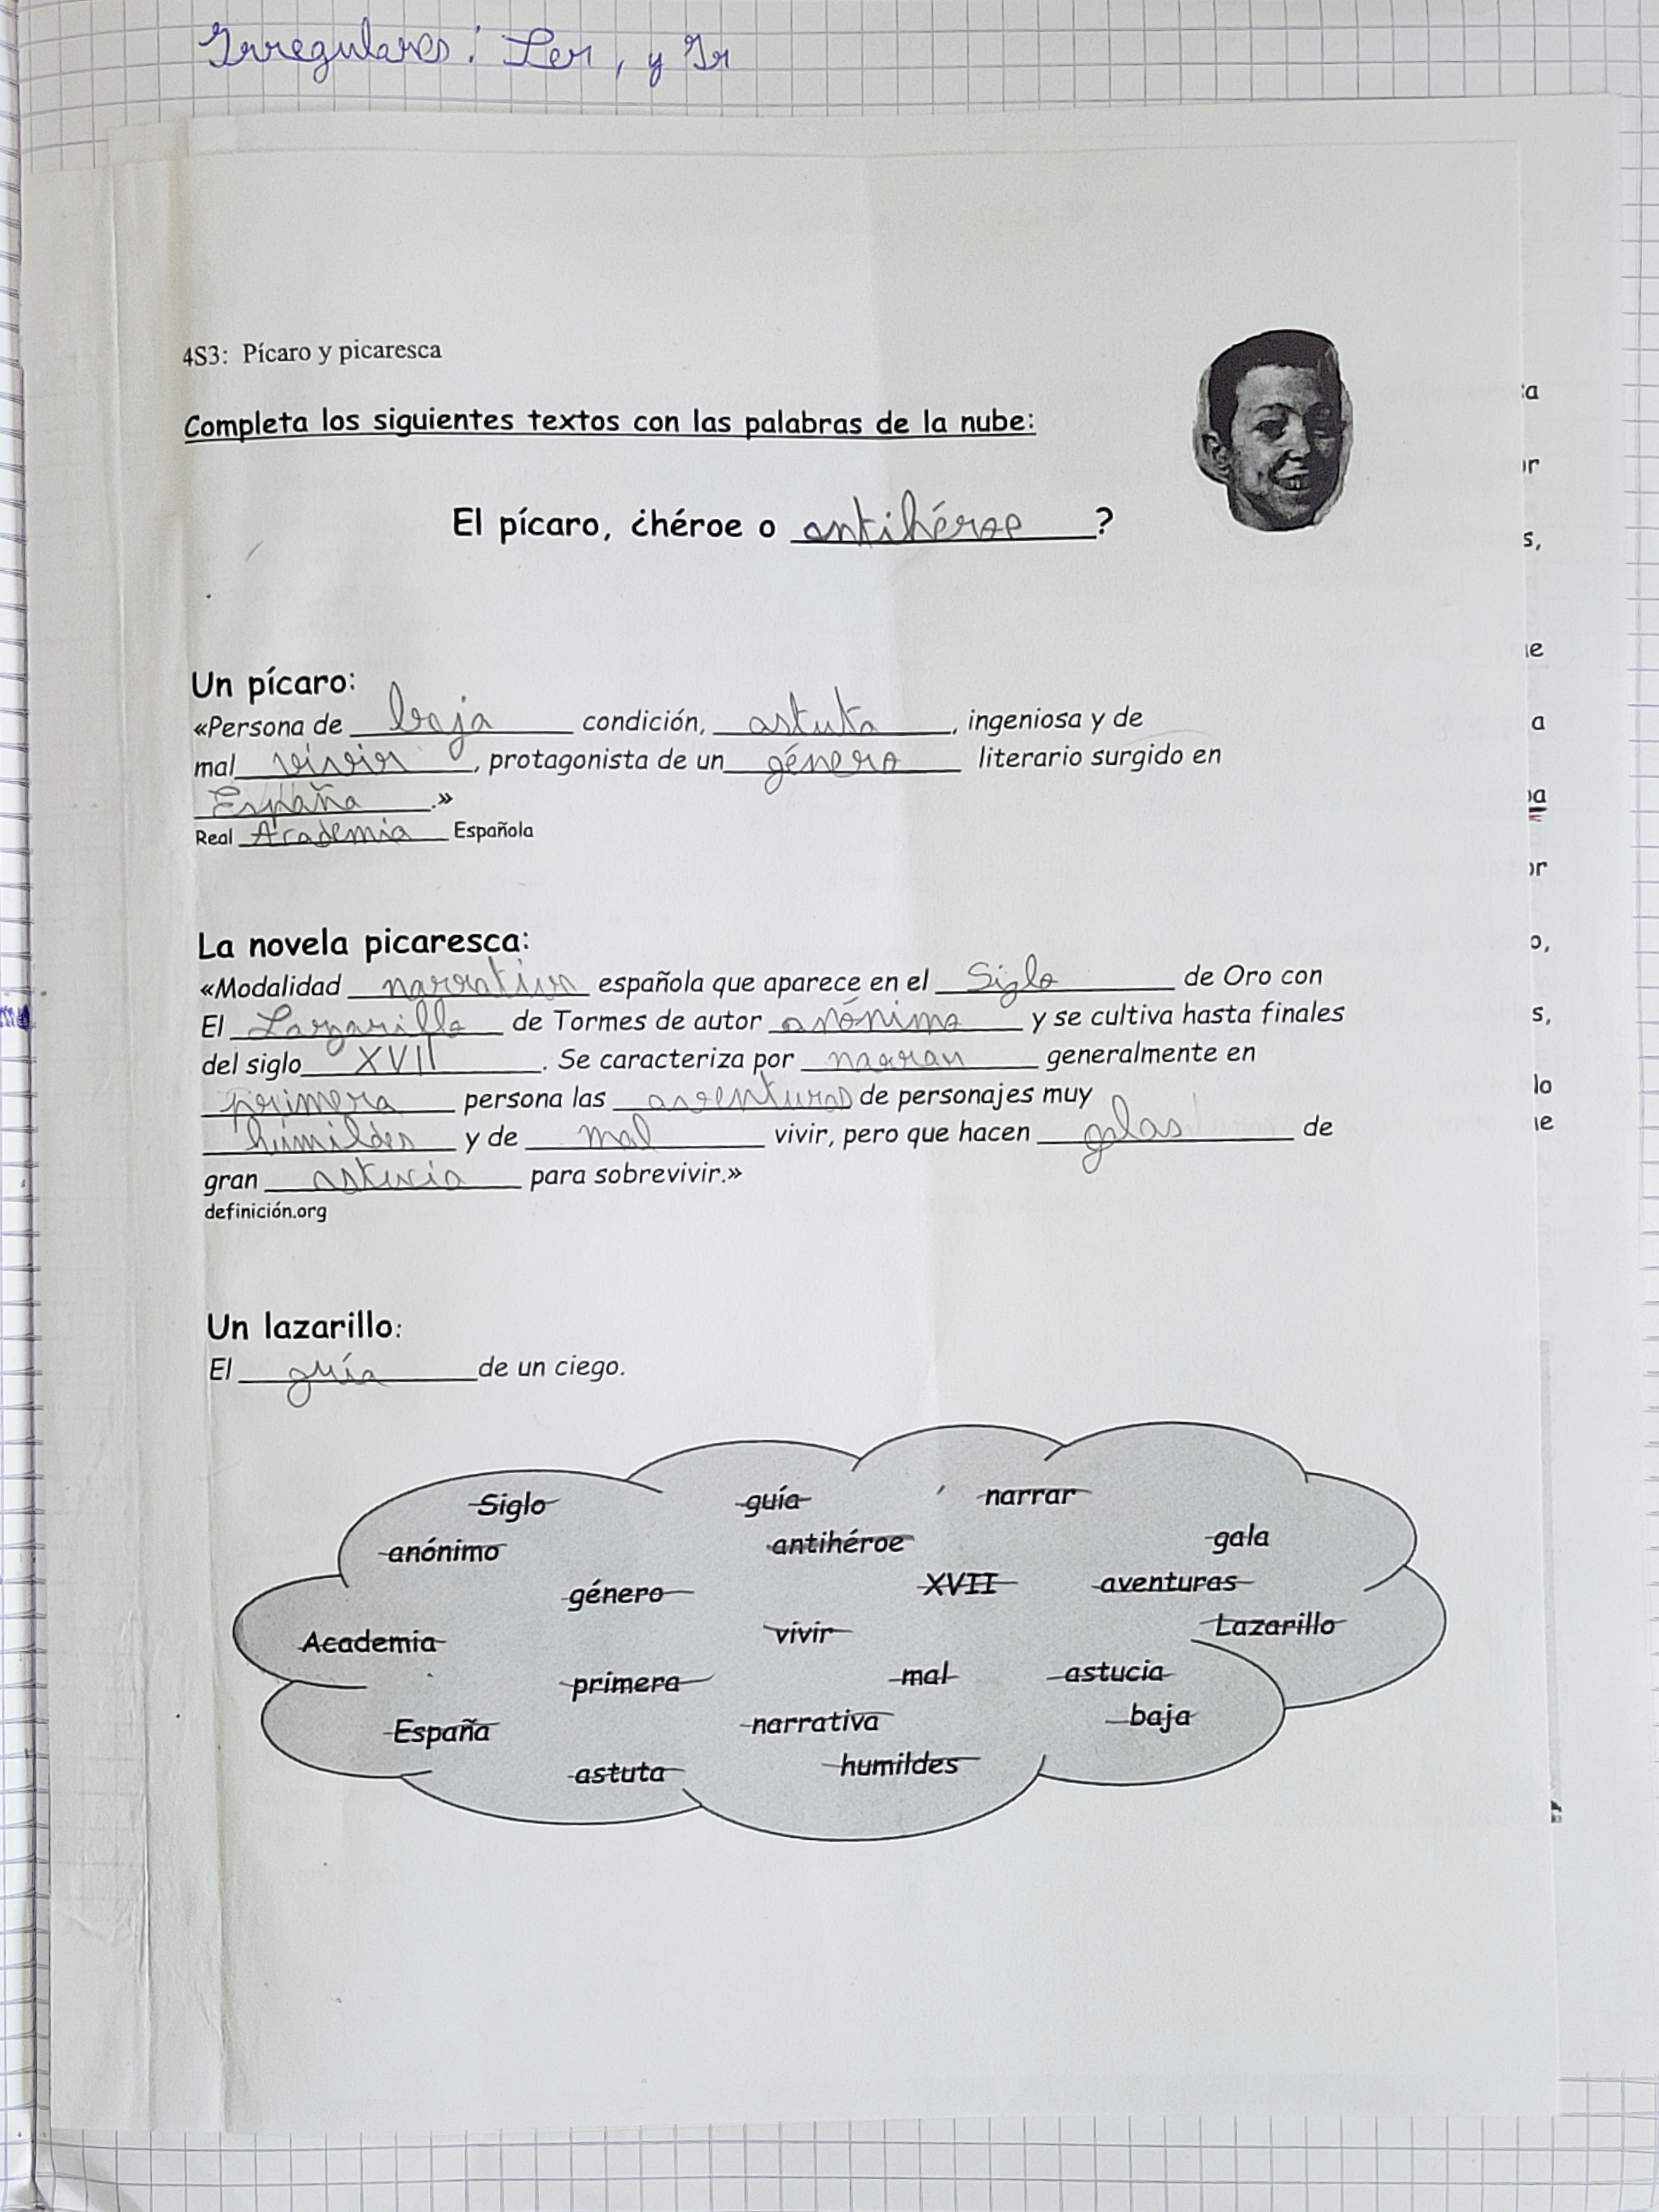 Irregulares: Ser, y Ir
4S3: Pícaro y picaresca
Completa los siguientes textos con las palabras de la nube:
El pícaro, ¿héroe o antihéroe?
Un pícaro:
«Persona de baja condición, astuta, ingeniosa y de
mal vivir, protagonista de un género literario surgido en
España.»
Real Academia Española
La novela picaresca:
«Modalidad narrativa española que aparece en el Siglo de Oro con
El Lazarillo de Tormes de autor anónimo y se cultiva hasta finales
del siglo XVII. Se caracteriza por narrar generalmente en
primera persona las aventuras de personajes muy
humildes y de mal vivir, pero que hacen de
gran astucia para sobrevivir.»
definición.org
Un lazarillo:
El guía de un ciego.
Siglo guía narrar
anónimo antihéroe gala
género XVII aventuras
Academia vivir Lazarillo
primera mal astucia
España narrativa baja
astuta humildes